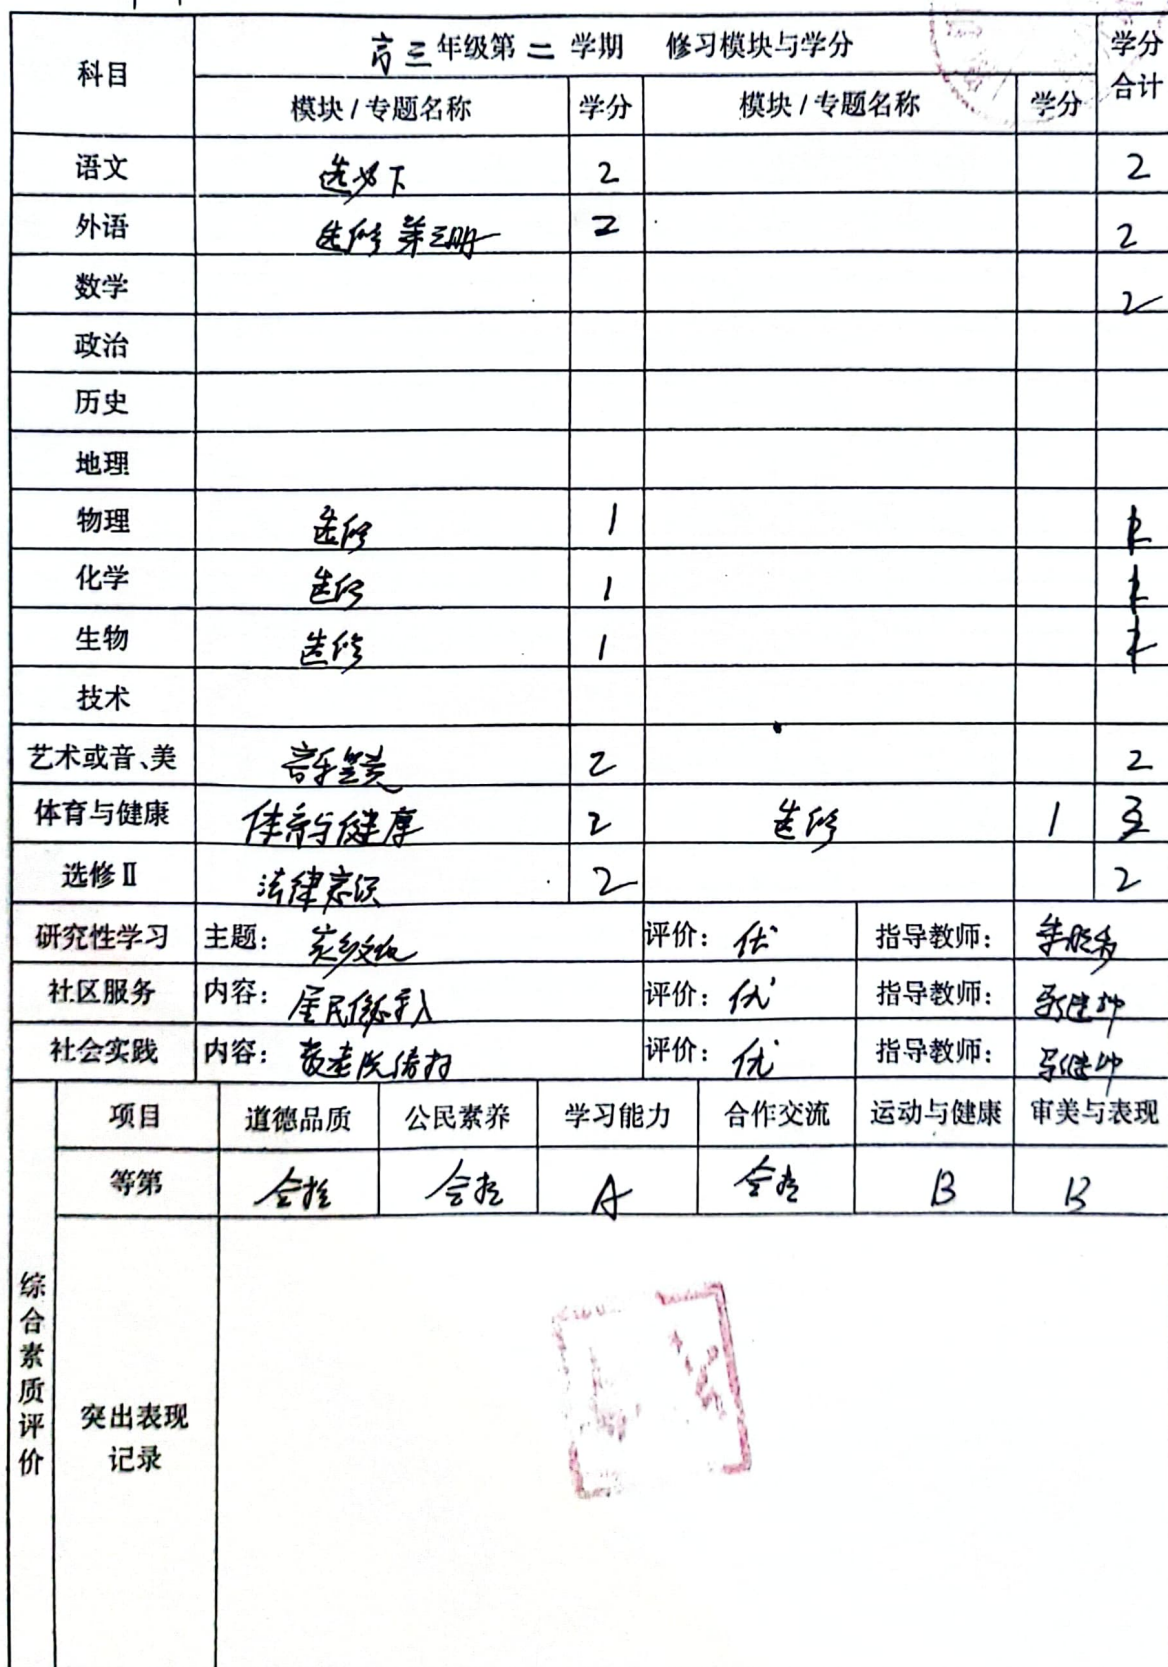 科目 高三年级第二学期 修习模块与学分 学分合计
模块/专题名称 学分 模块/专题名称 学分
语文 选必下 2 2
外语 选修第三册 2 2
数学 2
政治
历史
地理
物理 选修 1
化学 选修 1
生物 选修 1
技术
艺术或音、美 音乐鉴赏 2 2
体育与健康 体育与健康 2 选修 1 3
选修Ⅱ 法律意识 2 2
研究性学习 主题: 评价:优 指导教师:
社区服务 内容: 评价:优 指导教师:
社会实践 内容: 评价:优 指导教师:
综合素质评价
项目 道德品质 公民素养 学习能力 合作交流 运动与健康 审美与表现
等第 合格 合格 A 合格 B B
突出表现
记录